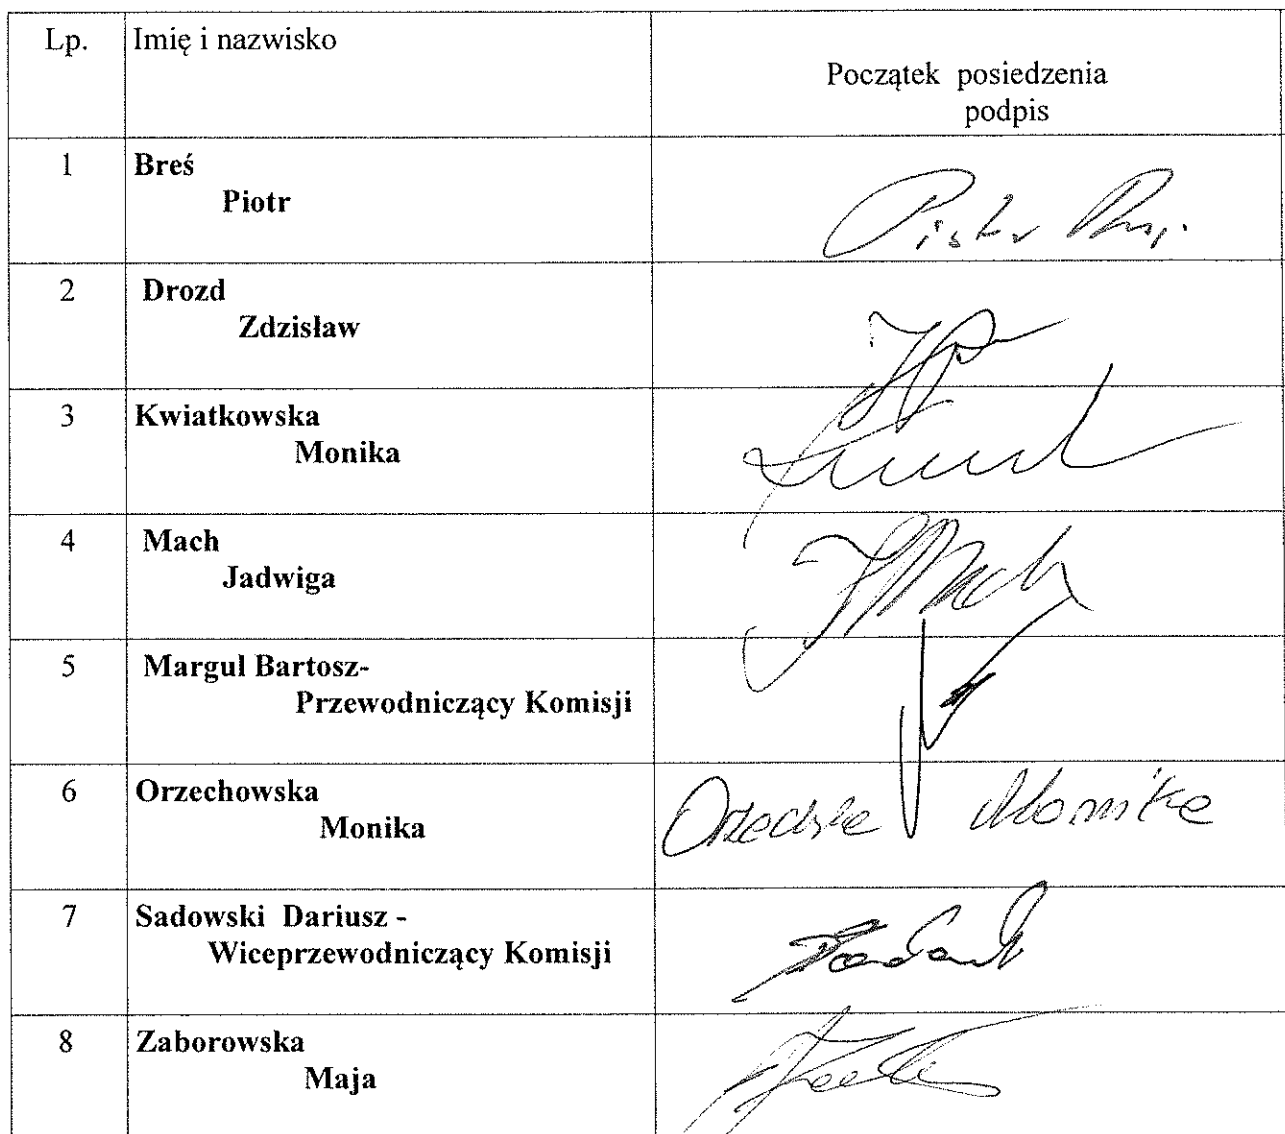 Lp.
Imię i nazwisko
Początek posiedzenia
podpis
1
Breś
Piotr
Piotr
2
Drozd
Zdzisław
3
Kwiatkowska
Monika
4
Mach
Jadwiga
JMach
5
Margul Bartosz-
Przewodniczący Komisji
6
Orzechowska
Monika
Monika
7
Sadowski Dariusz -
Wiceprzewodniczący Komisji
8
Zaborowska
Maja